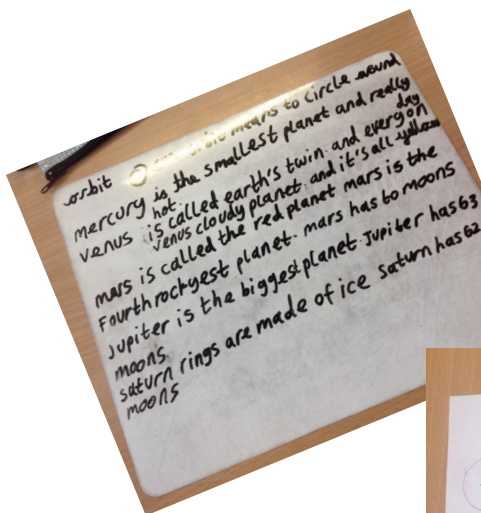 orbit means to Circle around
mercury is the smallest planet and really
hot.
venus is called earth's twin and every day on
venus cloudy planet and it's all yellow
mars is called the red planet mars is the
Fourth rockyest planet. mars has to moons
Jupiter is the biggest planet. Jupiter has 63
moons
saturn rings are made of ice saturn has 62
moons